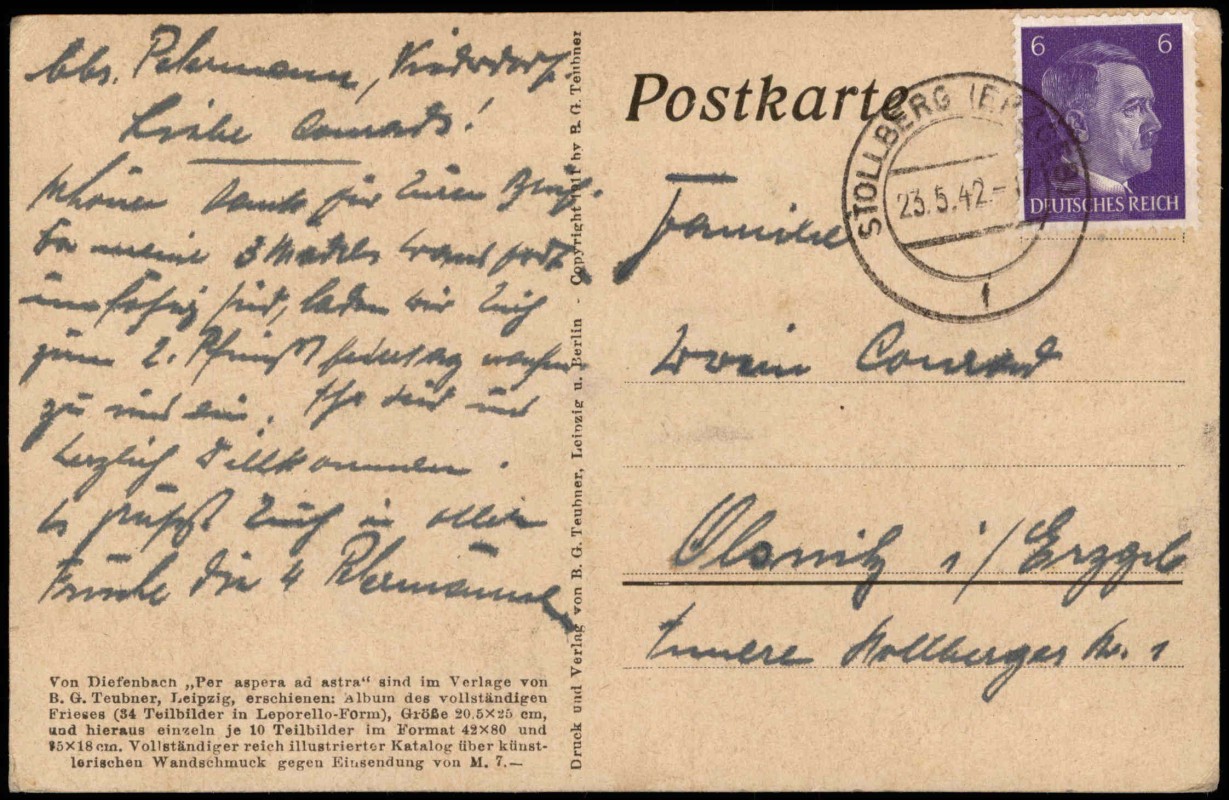 Abs. Pehrmann, Niederdorf.
Liebe Conrads!
Schönen Dank für Euren Brief.
Da meine 3 Mädels
sind, laden wir Euch
zum 2. Pfingstfeiertag
zu uns ein. Ihr seid uns
herzlich Willkommen.
Es grüßt Euch in alter
Frische die 4 Pehrmänner
Von Diefenbach „Per aspera ad astra“ sind im Verlage von
B. G. Teubner, Leipzig, erschienen: Album des vollständigen
Frieses (34 Teilbilder in Leporello-Form), Größe 20.5×25 cm,
und hieraus einzeln je 10 Teilbilder im Format 42×80 und
15×18 cm. Vollständiger reich illustrierter Katalog über künst-
lerischen Wandschmuck gegen Einsendung von M. 7.—
Druck und Verlag von B. G. Teubner, Leipzig u. Berlin - Copyright by B. G. Teubner
Postkarte
STOLLBERG (ERZGEB)
23.5.42.-17
1
6 6
DEUTSCHES REICH
Familie
Erwin Conrad
Ölsnitz i/Erzgeb
Innere Stollberger Str. 1